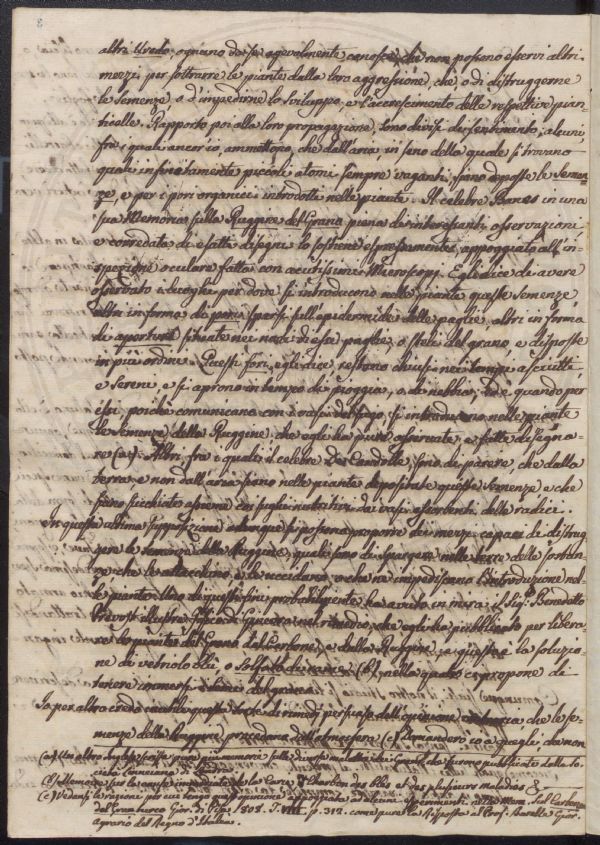 8
altri Uredo, ognuno da se agevolmente conosce, che non possono esservi altri
mezzi per sottrarre le piante dalla loro aggressione, che o di distruggerne
le semenze, o d'impedirne lo sviluppo, e l'accrescimento delle respettive pian=
ticelle. Rapporto poi alla loro propagazione, sono divisi di sentimento, alcuni,
fra i quali ancor io, ammettono, che dall'aria in seno della quale si trovano
quali infinitamente piccoli atomi sempre vaganti, siano deposte le Semen=
ze, e per i pori organici introdotte nelle piante. Il celebre Banks in una
sua Memoria sulla Ruggine del Grano piena di interessanti osservazioni
e corredata di esatti disegni lo sostiene espressamente, appoggiato all'in=
spezione oculare fatta con acutissimi Microscopj. Egli dice di avere
osservato i luoghi per dove si introducono nelle piante queste semenze
altri in forma di pori sparsi sull'epidermide delle paglie, altri in forma
di aperture situate nei nodi di esse paglie, o steli del grano, e disposte
in più ordini. Questi fori, egli dice, restano chiusi nei tempi asciutti,
e sereni, e si aprono in tempo di pioggia, o di nebbia, ed è quando per
essi, poichè comunicano con i vasi del sugo, si introducono nelle piante
le Semenze della Ruggine, che egli ha pure osservate, e fatte disegna=
re (a). Altri fra i quali il celebre De Candolle, sono di parere, che dalla
terra e non dall'aria siano nelle piante depositate queste Semenze e che
siano succhiate assieme coi sughi nutritivi dai vasi assorbenti delle radici.
In questa ultima supposizione adunque si possono proporre dei mezzi capaci di distrug=
gere le semenze della Ruggine, quali sono di spargere nelle terre delle sostan=
ze che le attacchino, e le uccidano, o che ne impediscano l'introduzione nel=
le piante. Uno di questi fini probabilmente ha avuto in mira il Sig.r Benedetto
Prevost illustre Fisico di Ginevra nel rimedio, che egli ha pubblicato per libera=
re le piante del Grano dal Carbone, e dalla Ruggine, e questo è la soluzio=
ne di vetriolo blù, o Solfato di rame (b), nella quale ci propone di
tenere immersi i semi del grano.
Io per altro credo inutile questa sorte di rimedj per essere dell'opinione che le se=
menze della Ruggine procedano dall'atmosfera (c) Domanderò io a quegli che non
(a) Un altro Inglese scrisse prima più memorie sulle diverse malattie dei Grani che furono pubblicate dalla So=
cietà
(b) Memoire sur la cause immediate de la Carie, ou Charbon des blés et des plusieurs maladies &
(c) Vedansi le ragioni per cui tengo quest'opinione appoggiata ad alcuni esperimenti nella Mem. sul Carbone
del Gran turco Gior. di Pisa 1808. T. VIII. p. 312. come pure la Risposta al Prof. Barelle Gior.
agrario del Regno d'Italia.